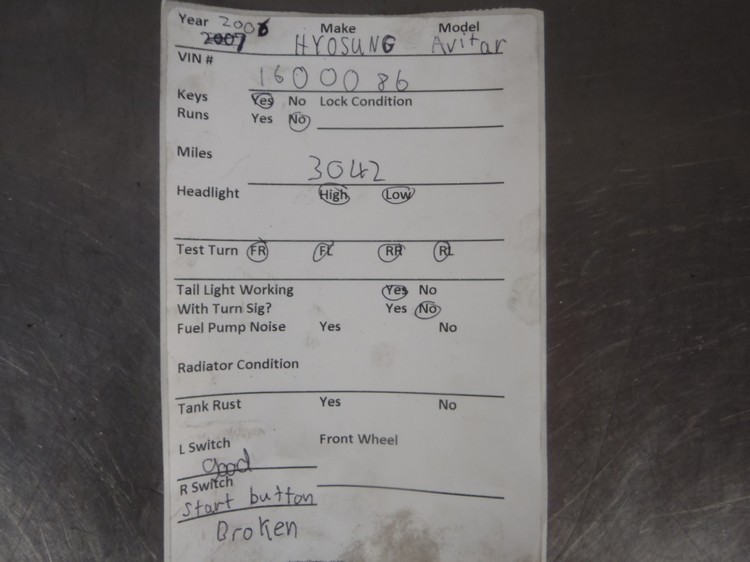 Year 2006 Make Model
2007 HYOSUNG Avitar
VIN #
1600086
Keys Yes No Lock Condition
Runs Yes No
Miles
3042
Headlight High Low
Test Turn FR FL RR RL
Tail Light Working Yes No
With Turn Sig? Yes No
Fuel Pump Noise Yes No
Radiator Condition
Tank Rust Yes No
L Switch Front Wheel
Good
R Switch
Start button
Broken